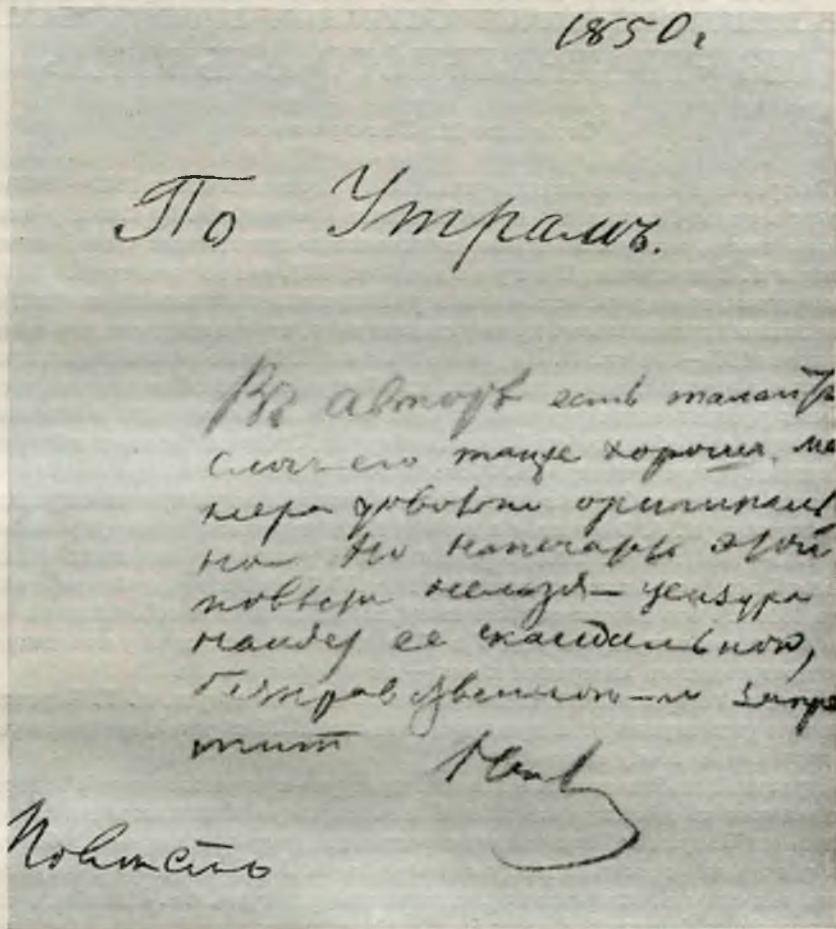 1850.
По Утрамъ.
Въ авторѣ есть талантъ
слог его также хорош. ма
нера довольно оригиналь
на Но напечатать этой
повѣсти нельзя — цензура
найдет ее скандальною,
безнравственною — и запре
тит
Повѣсть